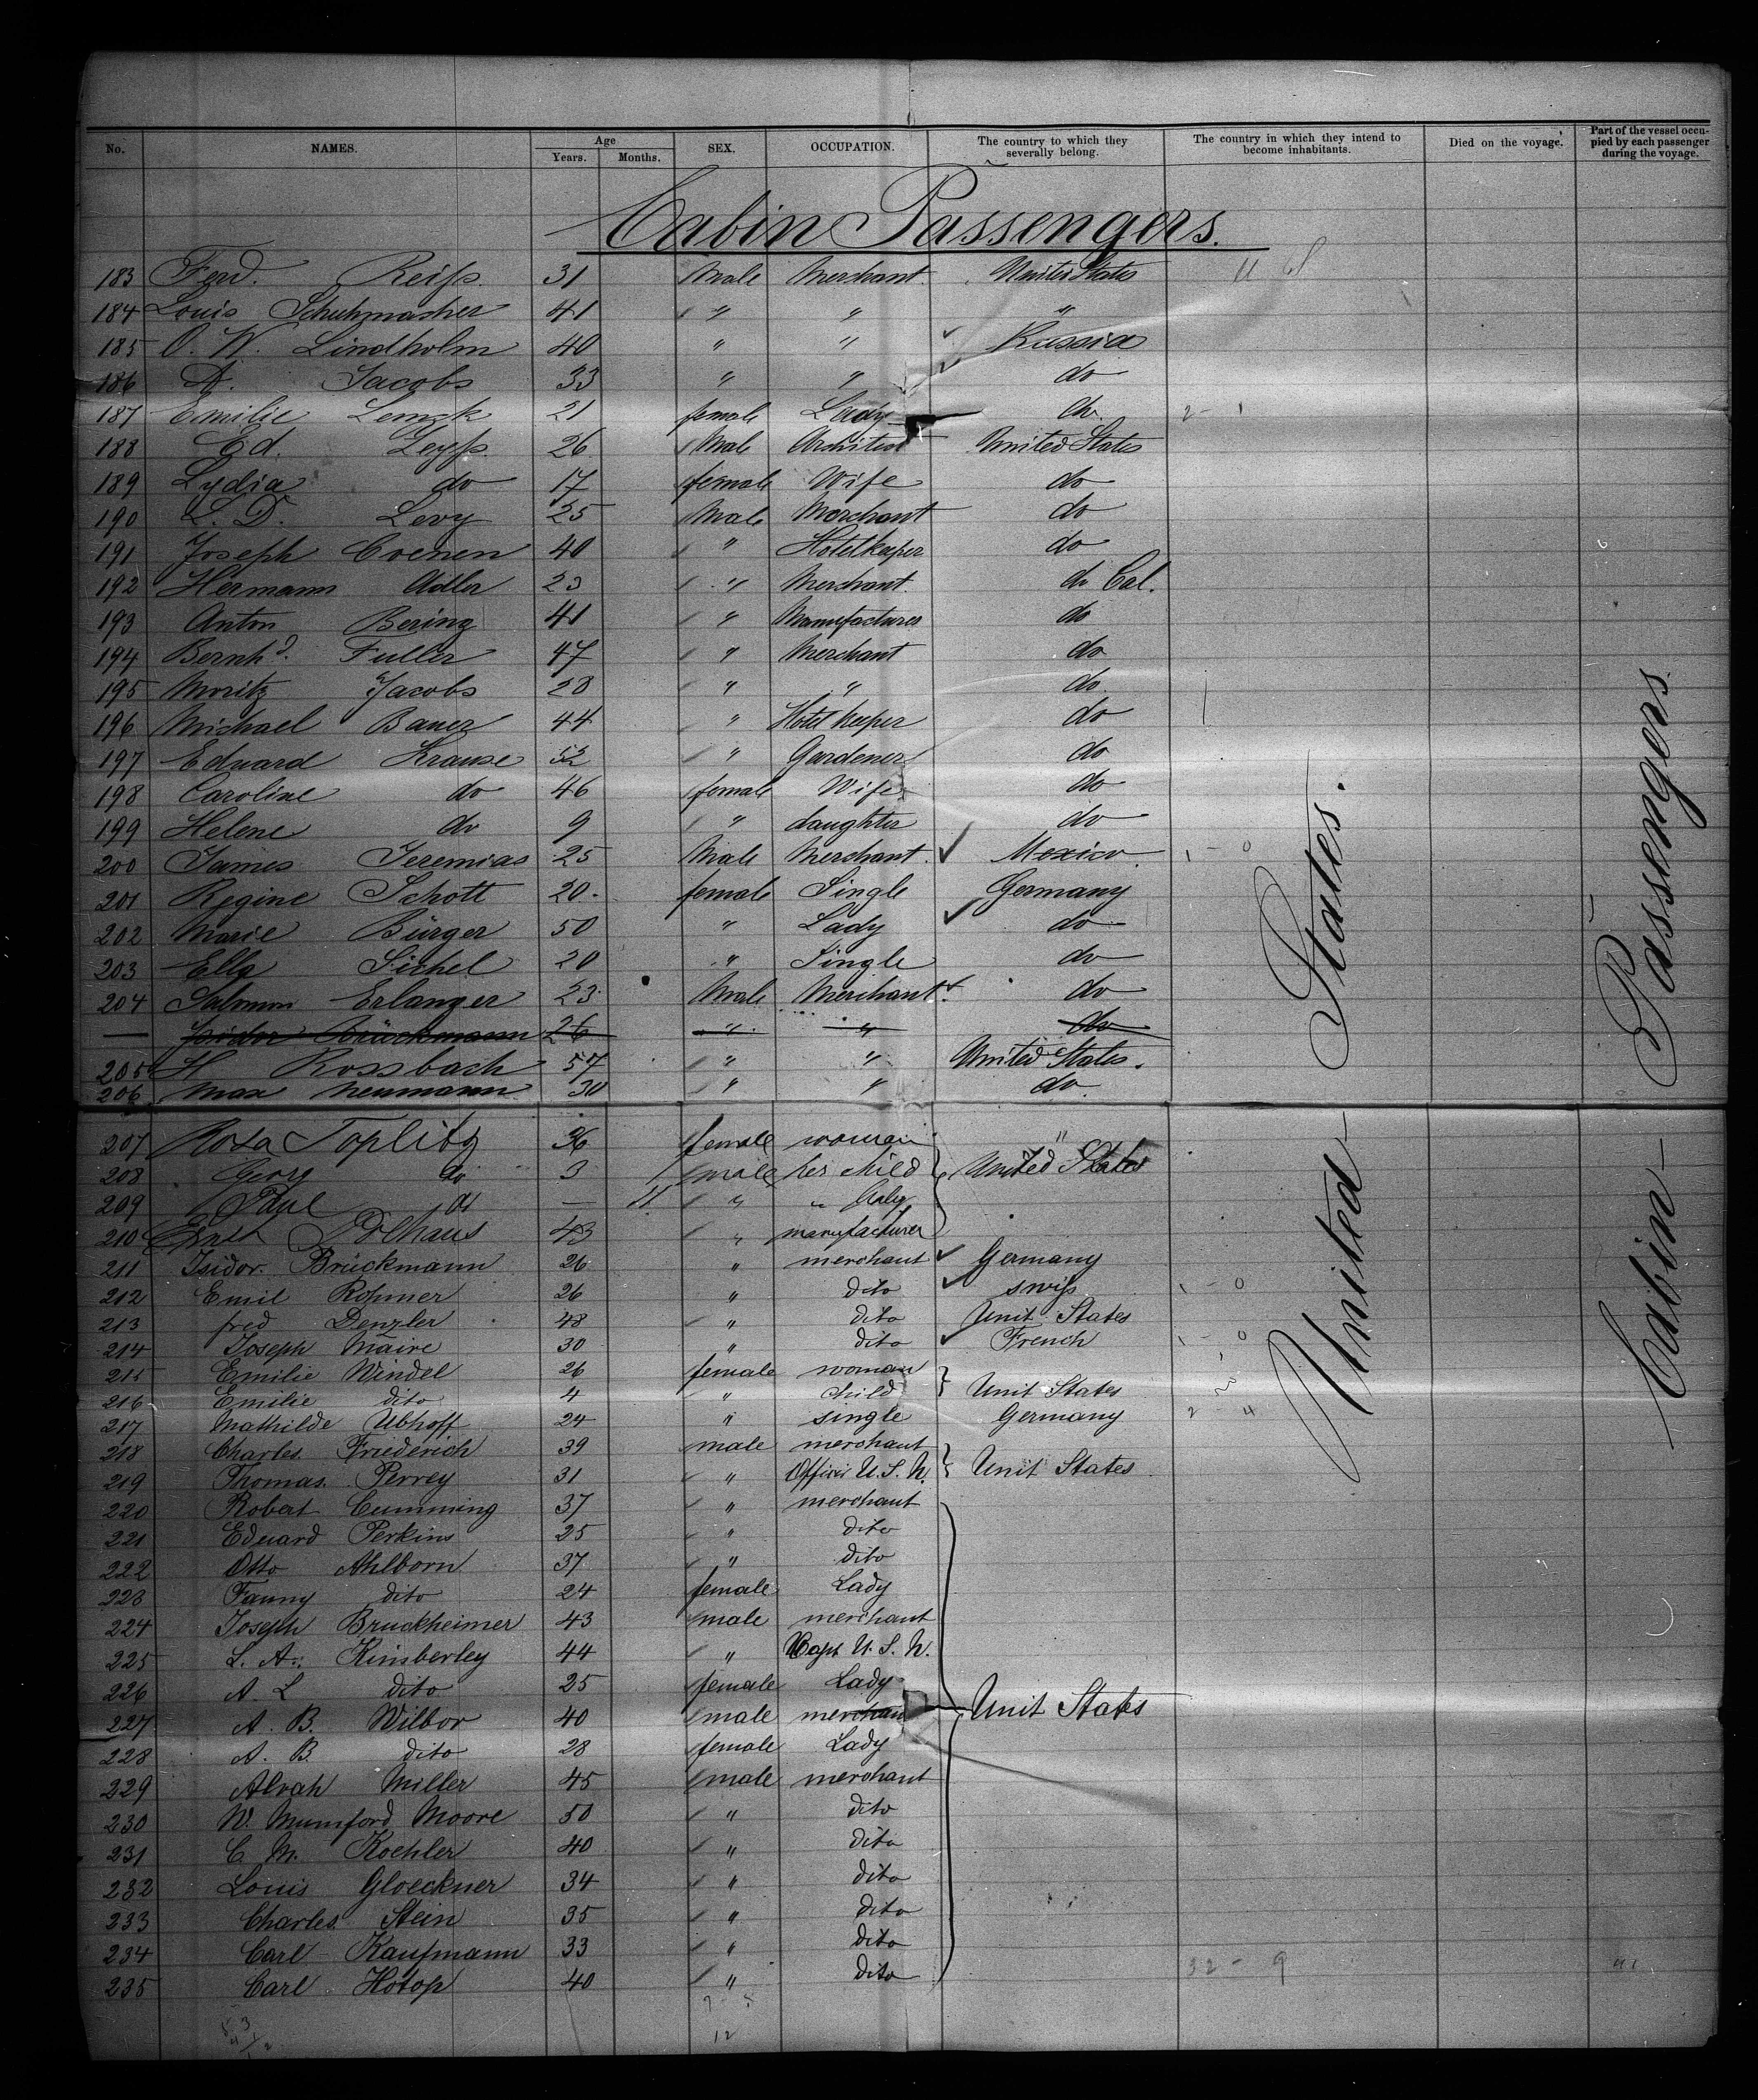 No. NAMES. Age Years. Months. SEX. OCCUPATION. The country to which they severally belong. The country in which they intend to become inhabitants. Died on the voyage. Part of the vessel occupied by each passenger during the voyage.
Cabin Passengers.
183 Ferd. Reiſs. 31 Male Merchant. United States
184 Louis Schuhmacher 41 " " "
185 O. W. Lindholm 40 " " Russia
186 A. Jacobs 33 " " do
187 Emilie Lemzk 21 female Lady do 2 - 1
188 Ed. Leyſs. 26 Male Architect United States
189 Lydia do 17 female Wife do
190 L. D. Levy 25 Male Merchant do
191 Joseph Coenen 40 " Hotelkeeper do
192 Hermann Adler 23 " Merchant. do Cal.
193 Anton Bering 41 " Manufacturer do
194 Bernhd. Fuller 47 " Merchant do
195 Moritz Jacobs 28 " " do.
196 Michael Bauer 44 " Hotel keeper do
197 Eduard Krause 52 " Gardener do
198 Caroline do 46 female Wife do
199 Helene do 9 " daughter do
200 James Jeremias 25 Male Merchant. Mexico. 1 - 0
201 Regine Schott 20. female Single Germany
202 Marie Bürger 50 " Lady do
203 Ella Sichel 20 " Single do
204 Salomon Erlanger 23 Male Merchant. do
— Isidor Brückmann 26 " " do
205 H Rossbach 57 " " United States.
206 Max Neumann 30 " " do.
207 Rosa Toplitz 36 female woman "
208 Georg do 3 male her child United States
209 Paul do — 11 " " Baby
210 Polhaus 43 " manufacturer
211 Isidor. Brückmann 26 " merchant Germany
212 Emil Rohmer 26 " dito swiſs 1 - 0
213 fred Denzler 48 " dito Unit States
214 Joseph Maire 30 " dito French 1 - 0
215 Emilie Windel 26 female woman
216 Emilie dito 4 " child Unit States
217 Mathilde Ubhoff 24 " single Germany 2 - 4
218 Charles Friederich 39 male merchant
219 Thomas. Perrey 31 " Officer U. S. N. Unit States
220 Robert Cumming 37 " merchant
221 Eduard Perkins 25 " dito
222 Otto Ahlborn 37 " dito
223 Fanny dito 24 female Lady
224 Joseph Bruckheimer 43 male merchant
225 L. A. Kimberley 44 " Capt U. S. N.
226 A. L dito 25 female Lady
227 A. B. Wilbor 40 male merchant Unit States
228 A. B dito 28 female Lady
229 Alvah Miller 45 male merchant
230 W. Mumford Moore 50 " dito
231 C. M. Koehler 40 " dito
232 Louis Gloeckner 34 " dito
233 Charles Stein 35 " dito
234 Carl Kaufmann 33 " dito 32 - 9
235 Carl Hotop 40 " dito
12
United States.
Cabin Passengers.